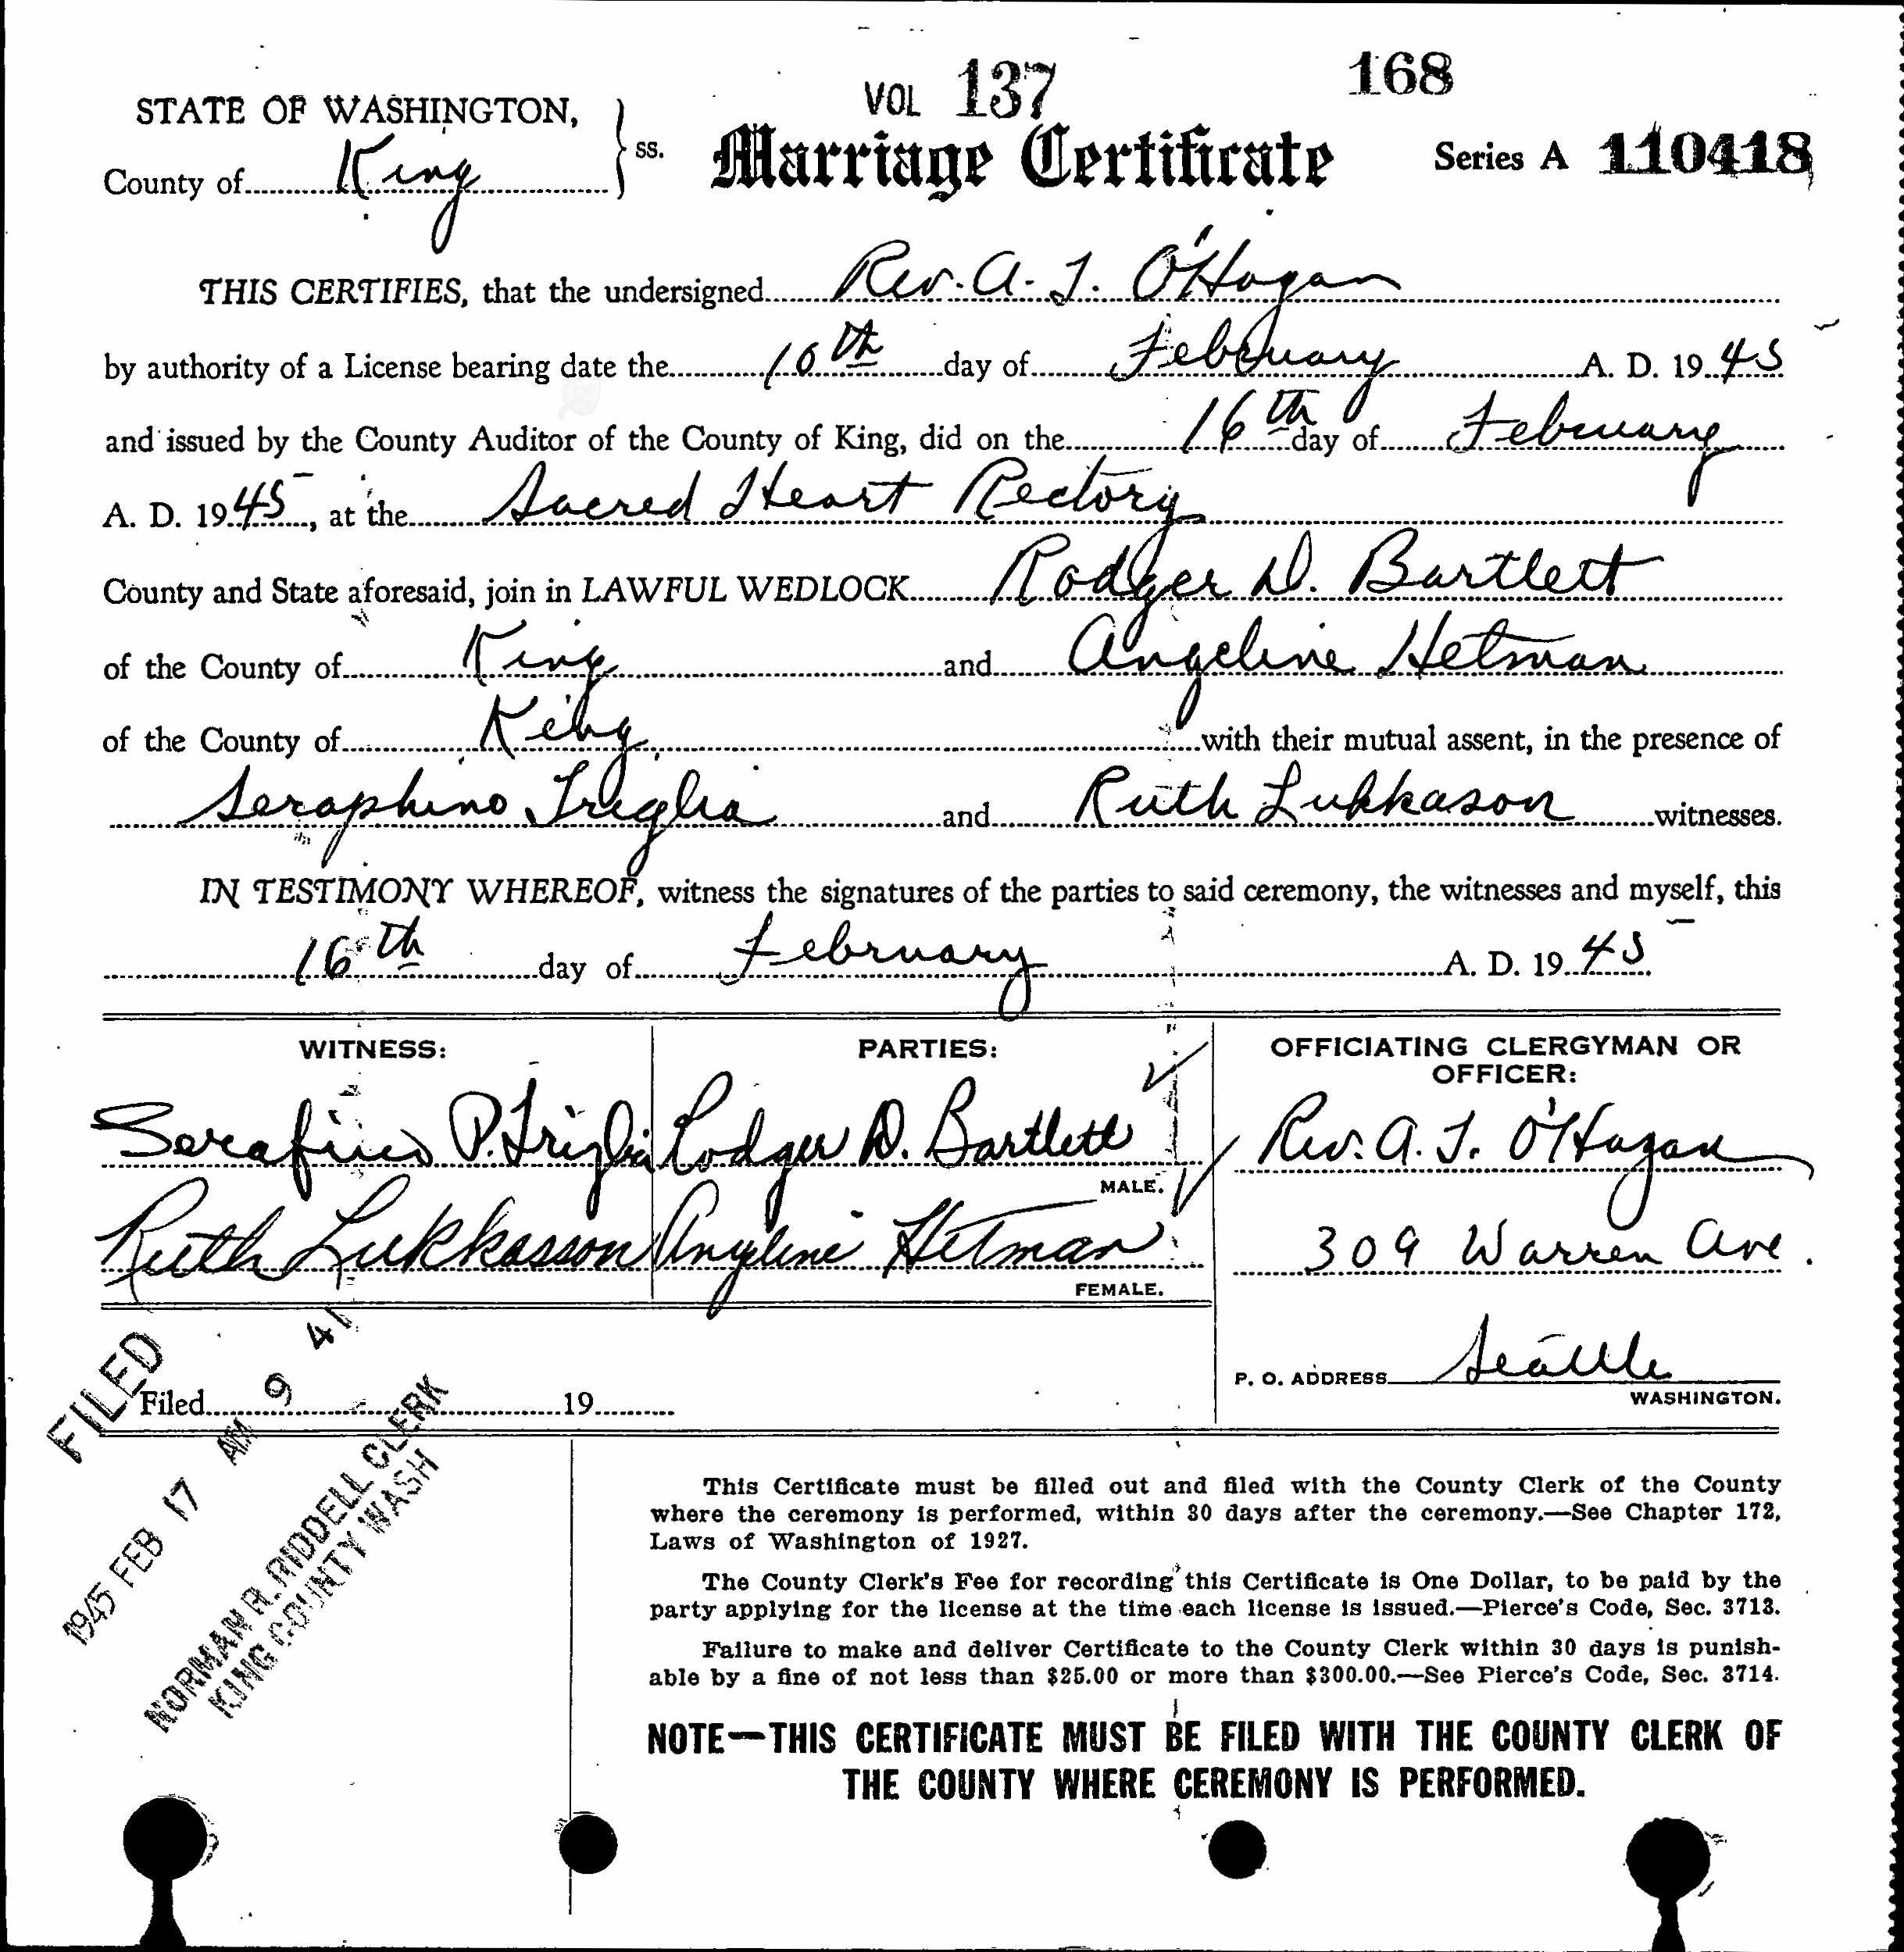 VOL 137
168
STATE OF WASHINGTON,
County of King
ss.
Marriage Certificate
Series A 110418
THIS CERTIFIES, that the undersigned Rev. A. J. O'Hagan
by authority of a License bearing date the 10th day of February A. D. 1945
and issued by the County Auditor of the County of King, did on the 16th day of February
A. D. 1945, at the Sacred Heart Rectory
County and State aforesaid, join in LAWFUL WEDLOCK Rodger D. Bartlett
of the County of King and Angeline Hetman
of the County of King with their mutual assent, in the presence of
Seraphino Triglia and Ruth Lukkason witnesses.
IN TESTIMONY WHEREOF, witness the signatures of the parties to said ceremony, the witnesses and myself, this
16th day of February A. D. 1945
WITNESS:
Serafino P. Triglia
Ruth Lukkasson
PARTIES:
Rodger D. Bartlett
MALE.
Angeline Hetman
FEMALE.
OFFICIATING CLERGYMAN OR
OFFICER:
Rev. A. J. O'Hagan
309 Warren Ave.
P. O. ADDRESS Seattle
WASHINGTON.
Filed 19
FILED
1945 FEB 17 AM 9 41
NORMAN R. RIDDELL CLERK
KING COUNTY WASH
This Certificate must be filled out and filed with the County Clerk of the County
where the ceremony is performed, within 30 days after the ceremony.—See Chapter 172,
Laws of Washington of 1927.
The County Clerk's Fee for recording this Certificate is One Dollar, to be paid by the
party applying for the license at the time each license is issued.—Pierce's Code, Sec. 3713.
Failure to make and deliver Certificate to the County Clerk within 30 days is punish-
able by a fine of not less than $25.00 or more than $300.00.—See Pierce's Code, Sec. 3714.
NOTE—THIS CERTIFICATE MUST BE FILED WITH THE COUNTY CLERK OF
THE COUNTY WHERE CEREMONY IS PERFORMED.